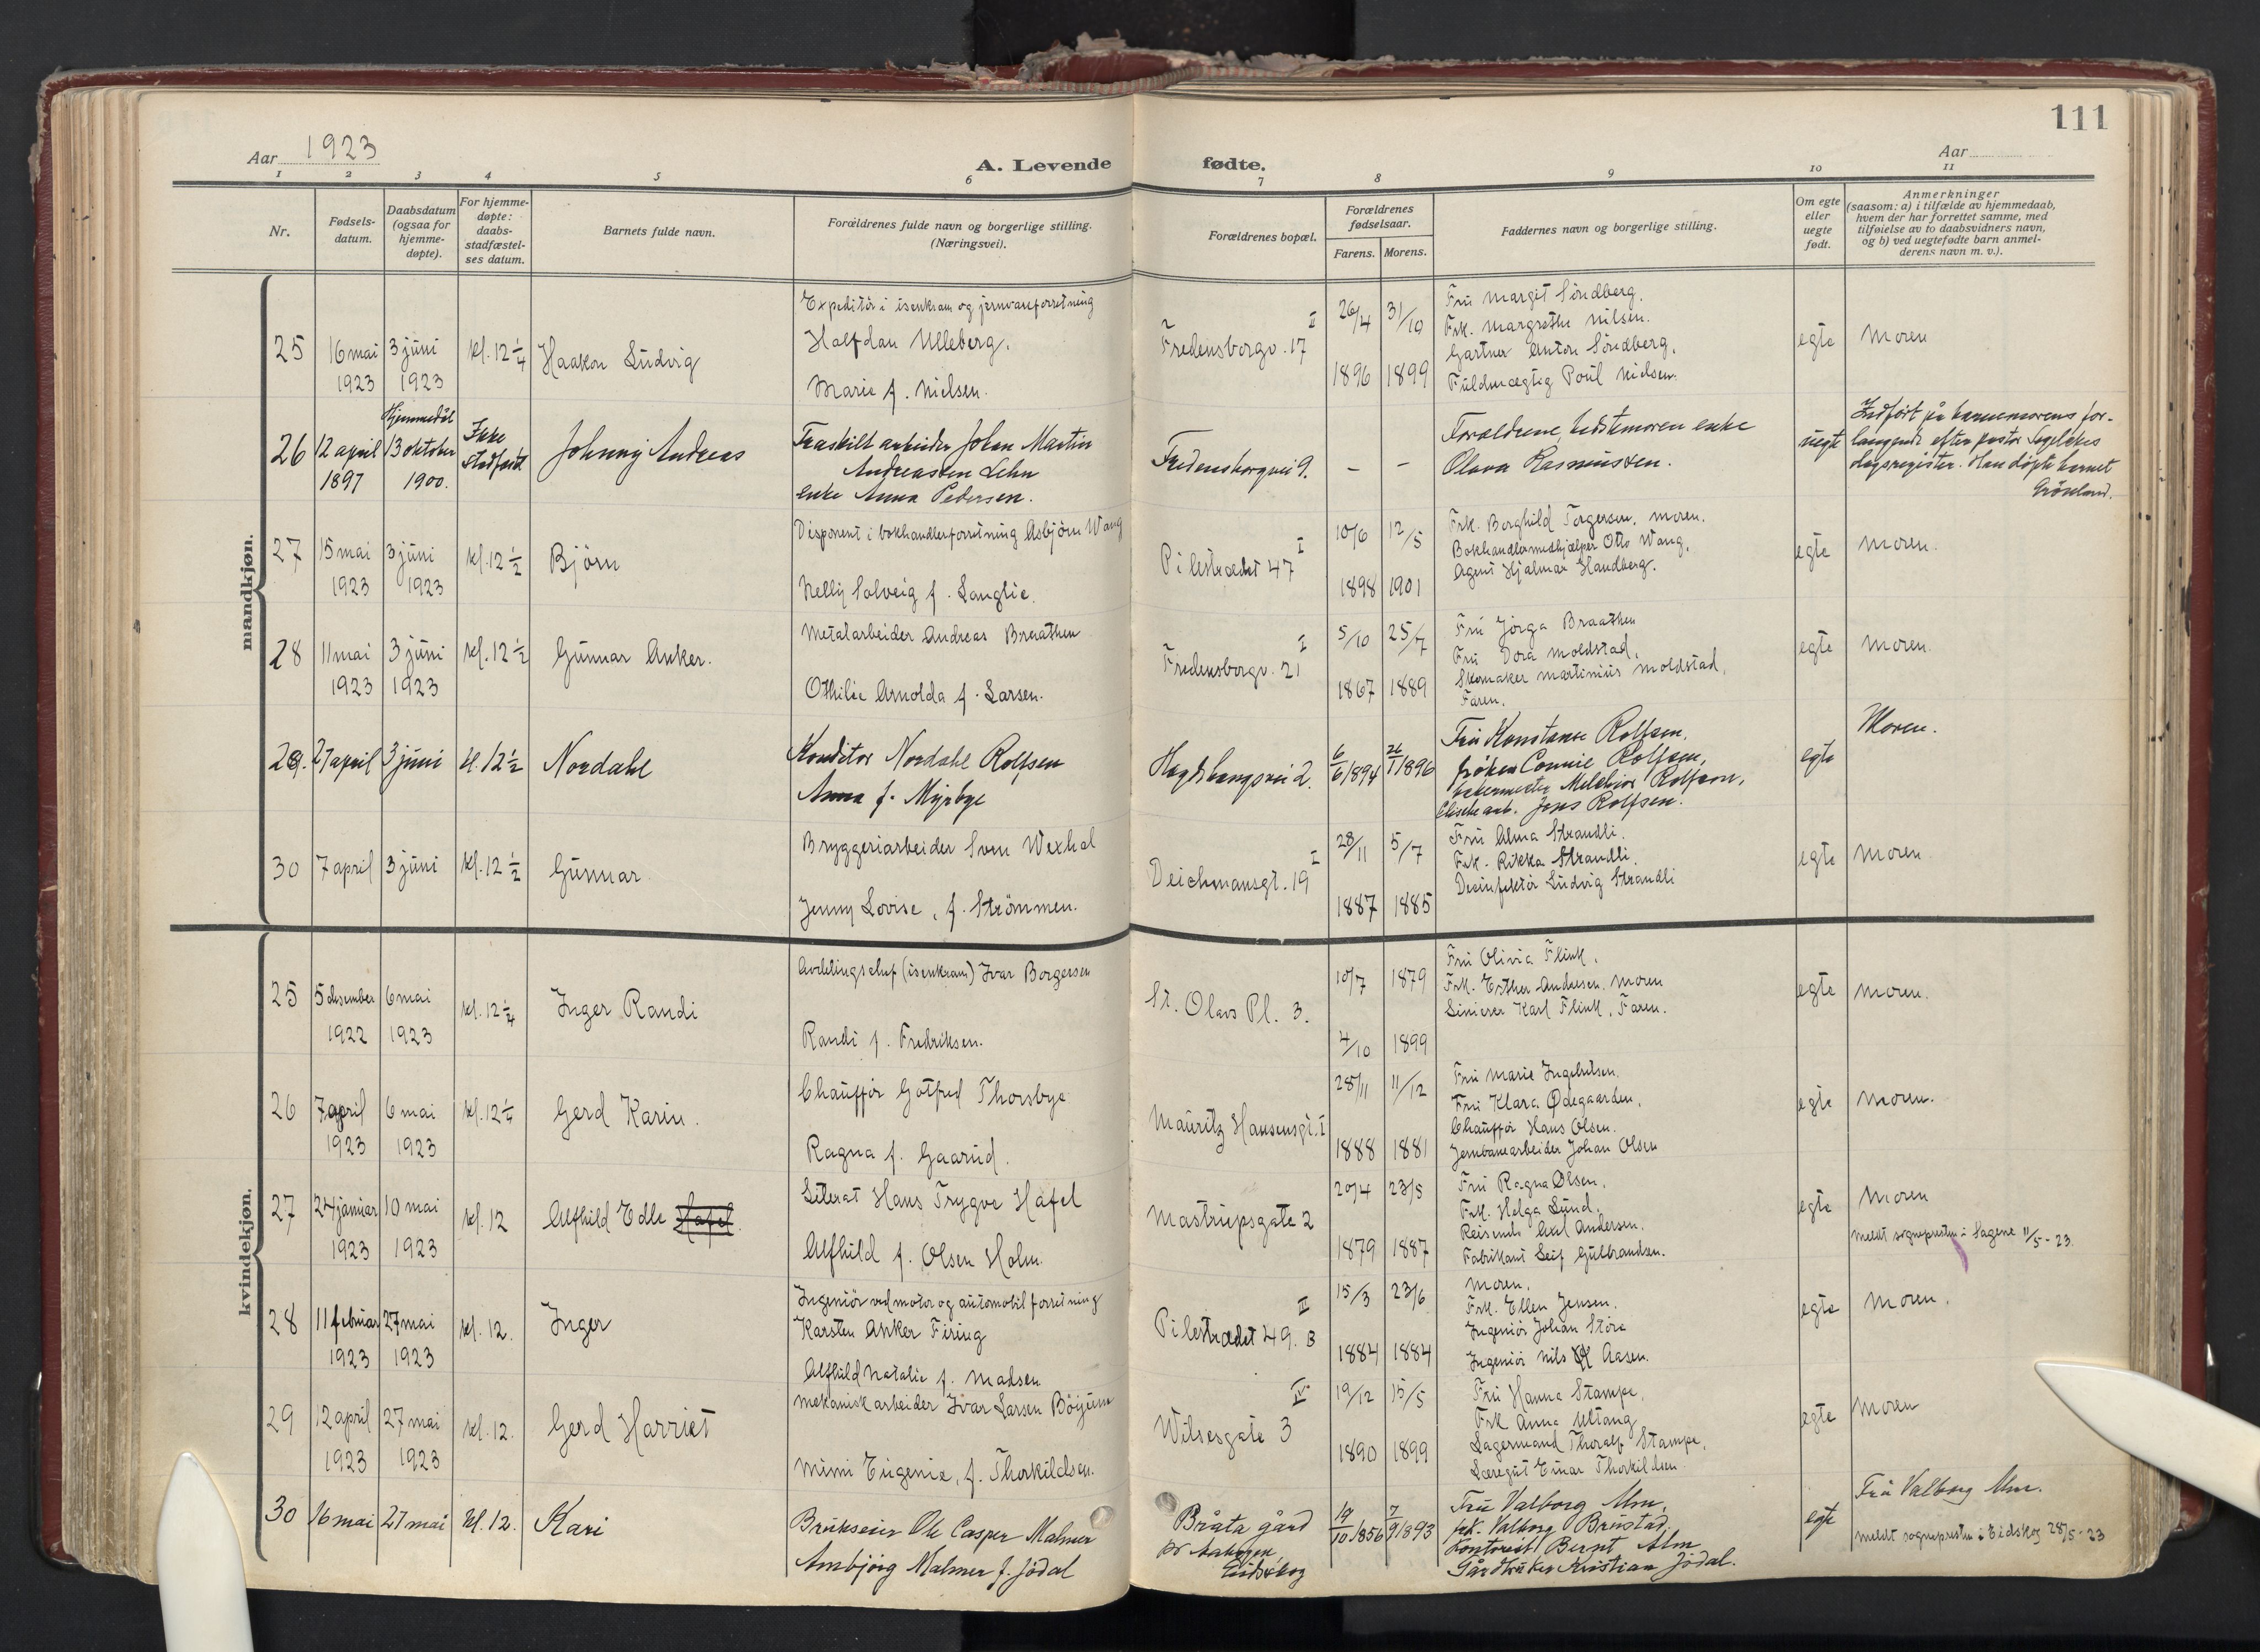 111
Aar 1923
A. Levende fødte.
Aar
1 2 3 4 5 6 7 8 9 10 11
Nr.
Fødsels-
datum.
Daabsdatum
(ogsaa for
hjemme-
døpte).
For hjemme-
døpte:
daabs-
stadfæstel-
ses datum.
Barnets fulde navn.
Forældrenes fulde navn og borgerlige stilling.
(Næringsvei).
Forældrenes bopæl.
Forældrenes
fødselsaar.
Farens. Morens.
Faddernes navn og borgerlige stilling.
Om egte
eller
uegte
født.
Anmerkninger
(saasom: a) i tilfælde av hjemmedaab,
hvem der har forrettet samme, med
tilføielse av to daabsvidners navn,
og b) ved uegtefødte barn anmel-
derens navn m. v.).
mandkjøn.
25
16 mai
1923
3 juni
1923
kl. 12 1/4
Haakon Ludvig
Expeditör i isenkram og jernvareforretning
Halfdan Ulleberg.
Marie f. Nielsen.
Fredensborgv. 17 II
26/4
1896
31/10
1899
Fru Margit Söndberg.
Frk. Margrethe Nilsen.
Gartner Anton Söndberg.
Fuldmægtig Poul Nielsen.
egte
Moren
26
12 april
1897
Hjemmedöbt
13 oktober
1900.
Ikke
stadfæst.
Johnny Andreas
Fraskilt arbeider Johan Martin
Andreassen Lehn
enke Anna Pedersen.
Fredensborgvei 9.
– –
Forældrene, bedstemoren enke
Olava Rasmussen.
uegte
Indfört på barnemorens for-
langende efter pastor Fogelskes
dagsregister. Han döpte barnet
Grönland.
27
15 mai
1923
3 juni
1923
kl. 12 1/2
Björn
Disponent i bokhandlerforretning Asbjörn Wang
Nelly Solveig f. Langlie.
Pilestrædet 47 I
10/6
1898
12/5
1901
Frk. Borghild Torgersen. Moren.
Bokhandlermedhjælper Otto Wang.
Agent Hjalmar Handberg.
egte
Moren.
28
11 mai
1923
3 juni
1923
kl. 12 1/2
Gunnar Anker.
Metalarbeider Andreas Braathen
Othilie Arnolda f. Larsen.
Fredensborgv. 21 I
5/10
1867
25/7
1889
Fru Jörga Braathen
Fru Dora Moldstad.
Skomaker Martinius Moldstad.
Faren.
egte
Moren.
29.
27 april
3 juni
kl. 12 1/2
Nordahl
Konditor Nordahl Rolfsen
Anna f. Myrbye
Hegdehaugsvei 2.
6/6 1894
26/1 1896
Fru Konstanse Rolfsen.
fröken Connie Rolfsen,
bakermester Melchior Rolfsen,
Clichearb. Jens Rolfsen.
egte
Moren.
30
7 april
3 juni
kl. 12 1/2
Gunnar
Bryggeriarbeider Sven Wexhal
Jenny Lovise, f. Strömmen.
Deichmansgt. 19 I
28/11
1887
5/7
1885
Fru Alma Strandli.
Frk. Rikka Strandli.
Desinfektör Ludvig Strandli
egte
Moren
kvindekjøn.
25
5 desember
1922
6 mai
1923
kl. 12 1/4
Inger Randi
Avdelingschef (isenkram) Ivar Borgersen
Randi f. Fredriksen.
St. Olavs Pl. 3.
10/7 1879
4/10 1899
Fru Olivia Flink.
Frk. Esther Andresen. Moren
Linierer Karl Flink. Faren.
egte
Moren.
26
7 april
1923
6 mai
1923
kl. 12 1/4
Gerd Karin.
Chaufför Gotfred Thorsbye
Ragna f. Gaarud.
Mauritz Hansensgt. 1
28/11
1888
11/12
1881
Fru Marie Ingebretsen.
Fru Klara Ødegaarden.
Chauffør Hans Olsen.
Jernbanearbeider Johan Olsen
egte
Moren.
27
24 januar
1923
10 mai
1923
kl. 12
Alfhild Edle Hafel.
Literat Hans Trygve Hafel
Alfhild f. Olsen Holm.
Mastrupsgate 2
20/4
1879
23/5
1887
Fru Ragna Olsen.
Frk. Helga Lund.
Reisende Carl Andersen.
Fabrikant Leif Gulbrandsen.
egte
Moren
meldt sognepresten i Sagene 11/5-23.
28
11 februar
1923
27 mai
1923
kl. 12.
Inger
Ingeniör ved motor og automobilforretning
Karsten Anker Firing
Alfhild Natalie f. Madsen
Pilestrædet 49. B III
15/3
1884
23/6
1884
Moren.
Frk. Ellen Jensen.
Ingeniör Johan Störe
Ingeniör Nils Aasen.
egte
Moren.
29
12 april
1923
27 mai
1923
kl. 12.
Gerd Harriet
Mekanisk arbeider Ivar Larsen Böyum
Mimi Eugenie, f. Thorkildsen.
Wilsesgate 3 IV
19/12
1890
15/5
1899
Fru Hanna Stampe.
Frk Anna Utlang
Lagermand Thoralf Stampe.
Læregut Einar Thorkildsen
egte
Moren
30
16 mai
27 mai
kl. 12.
Kari
Brukseier Ole Casper Malmer
Ambjörg Malmer f. Jödal
Bråta gård
pr
Eidskog
19/10 1856
7/9 1893
Fru Valborg Alm,
frk. Valborg Brustad,
Kontorist Bernt Alm
Gårdbruker Kristian Jödal.
egte
Fru Valborg Alm.
meldt sognepresten i Eidskog 28/5-23